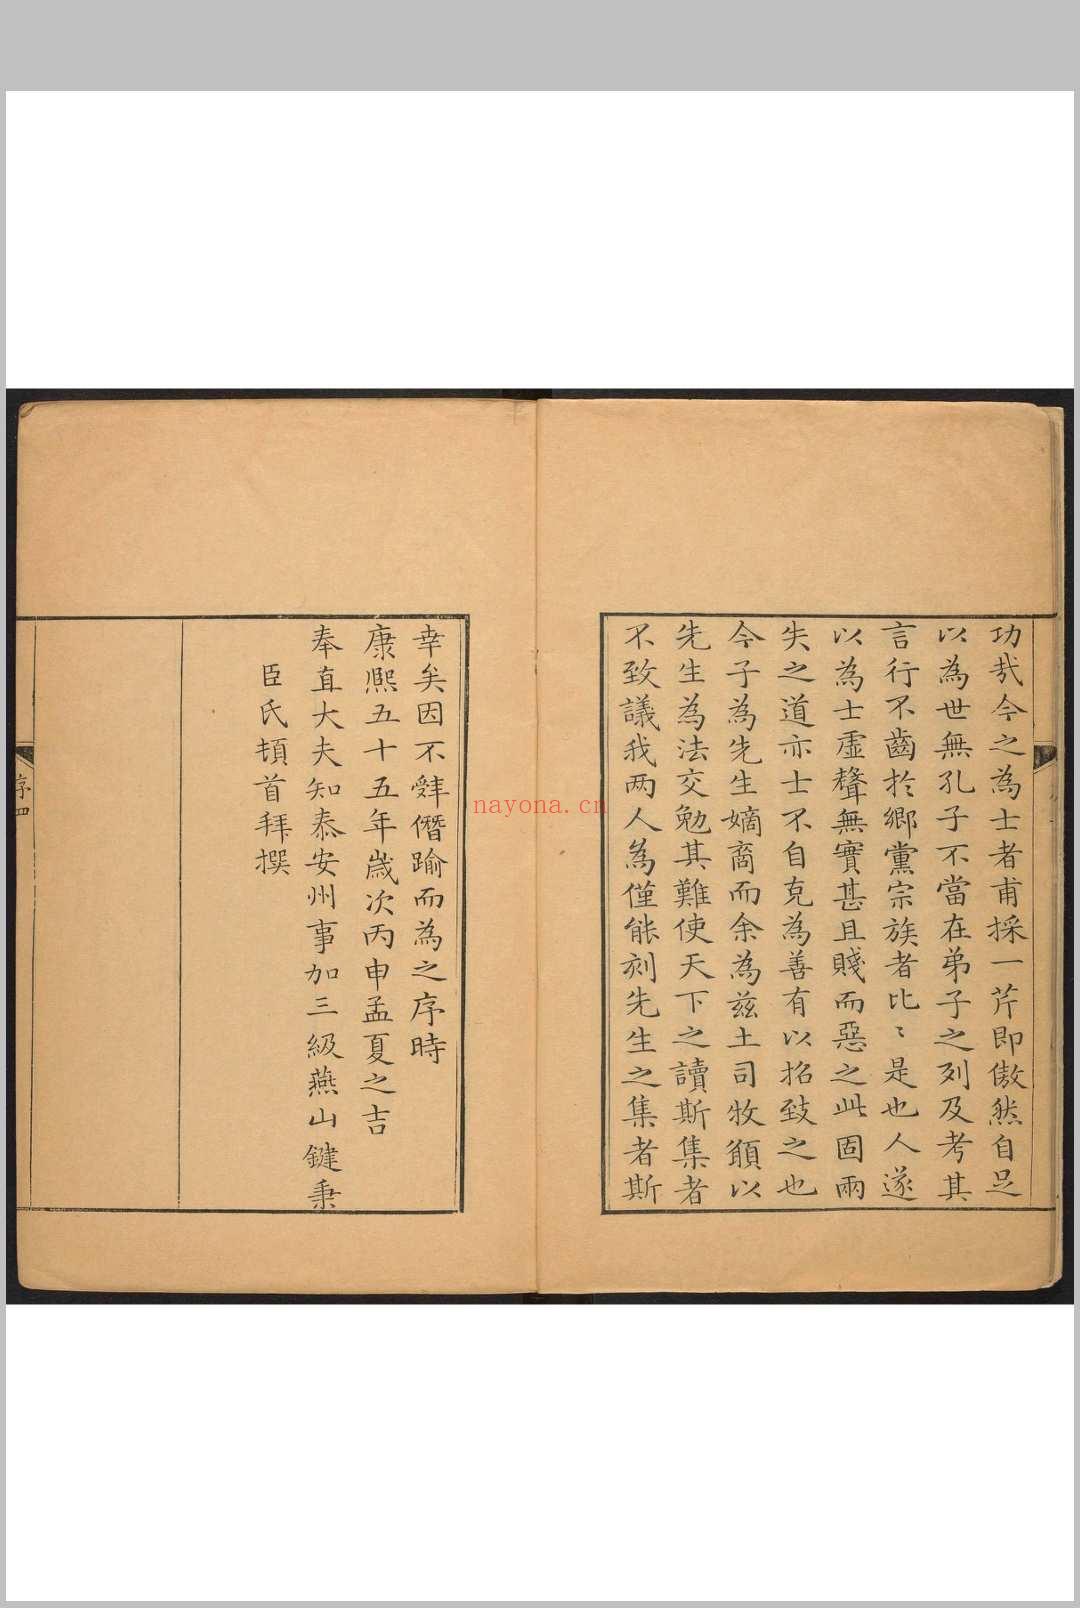 功哉今之為士者甫採一芹即傲然自足
以為世無孔子不當在弟子之列及考其
言行不齒於鄉黨宗族者比〻是也人遂
以為士虛聲無實甚且賤而惡之此固兩
失之道亦士不自克為善有以招致之也
今子為先生嫡裔而余為茲土司牧願以
先生為法交勉其難使天下之讀斯集者
不致議我两人為僅能刻先生之集者斯
幸矣因不辤僭踰而為之序時
康熙五十五年歲次丙申孟夏之吉
奉直大夫知泰安州事加三級燕山鍵秉
臣氏頓首拜撰
序四
nayona.cn